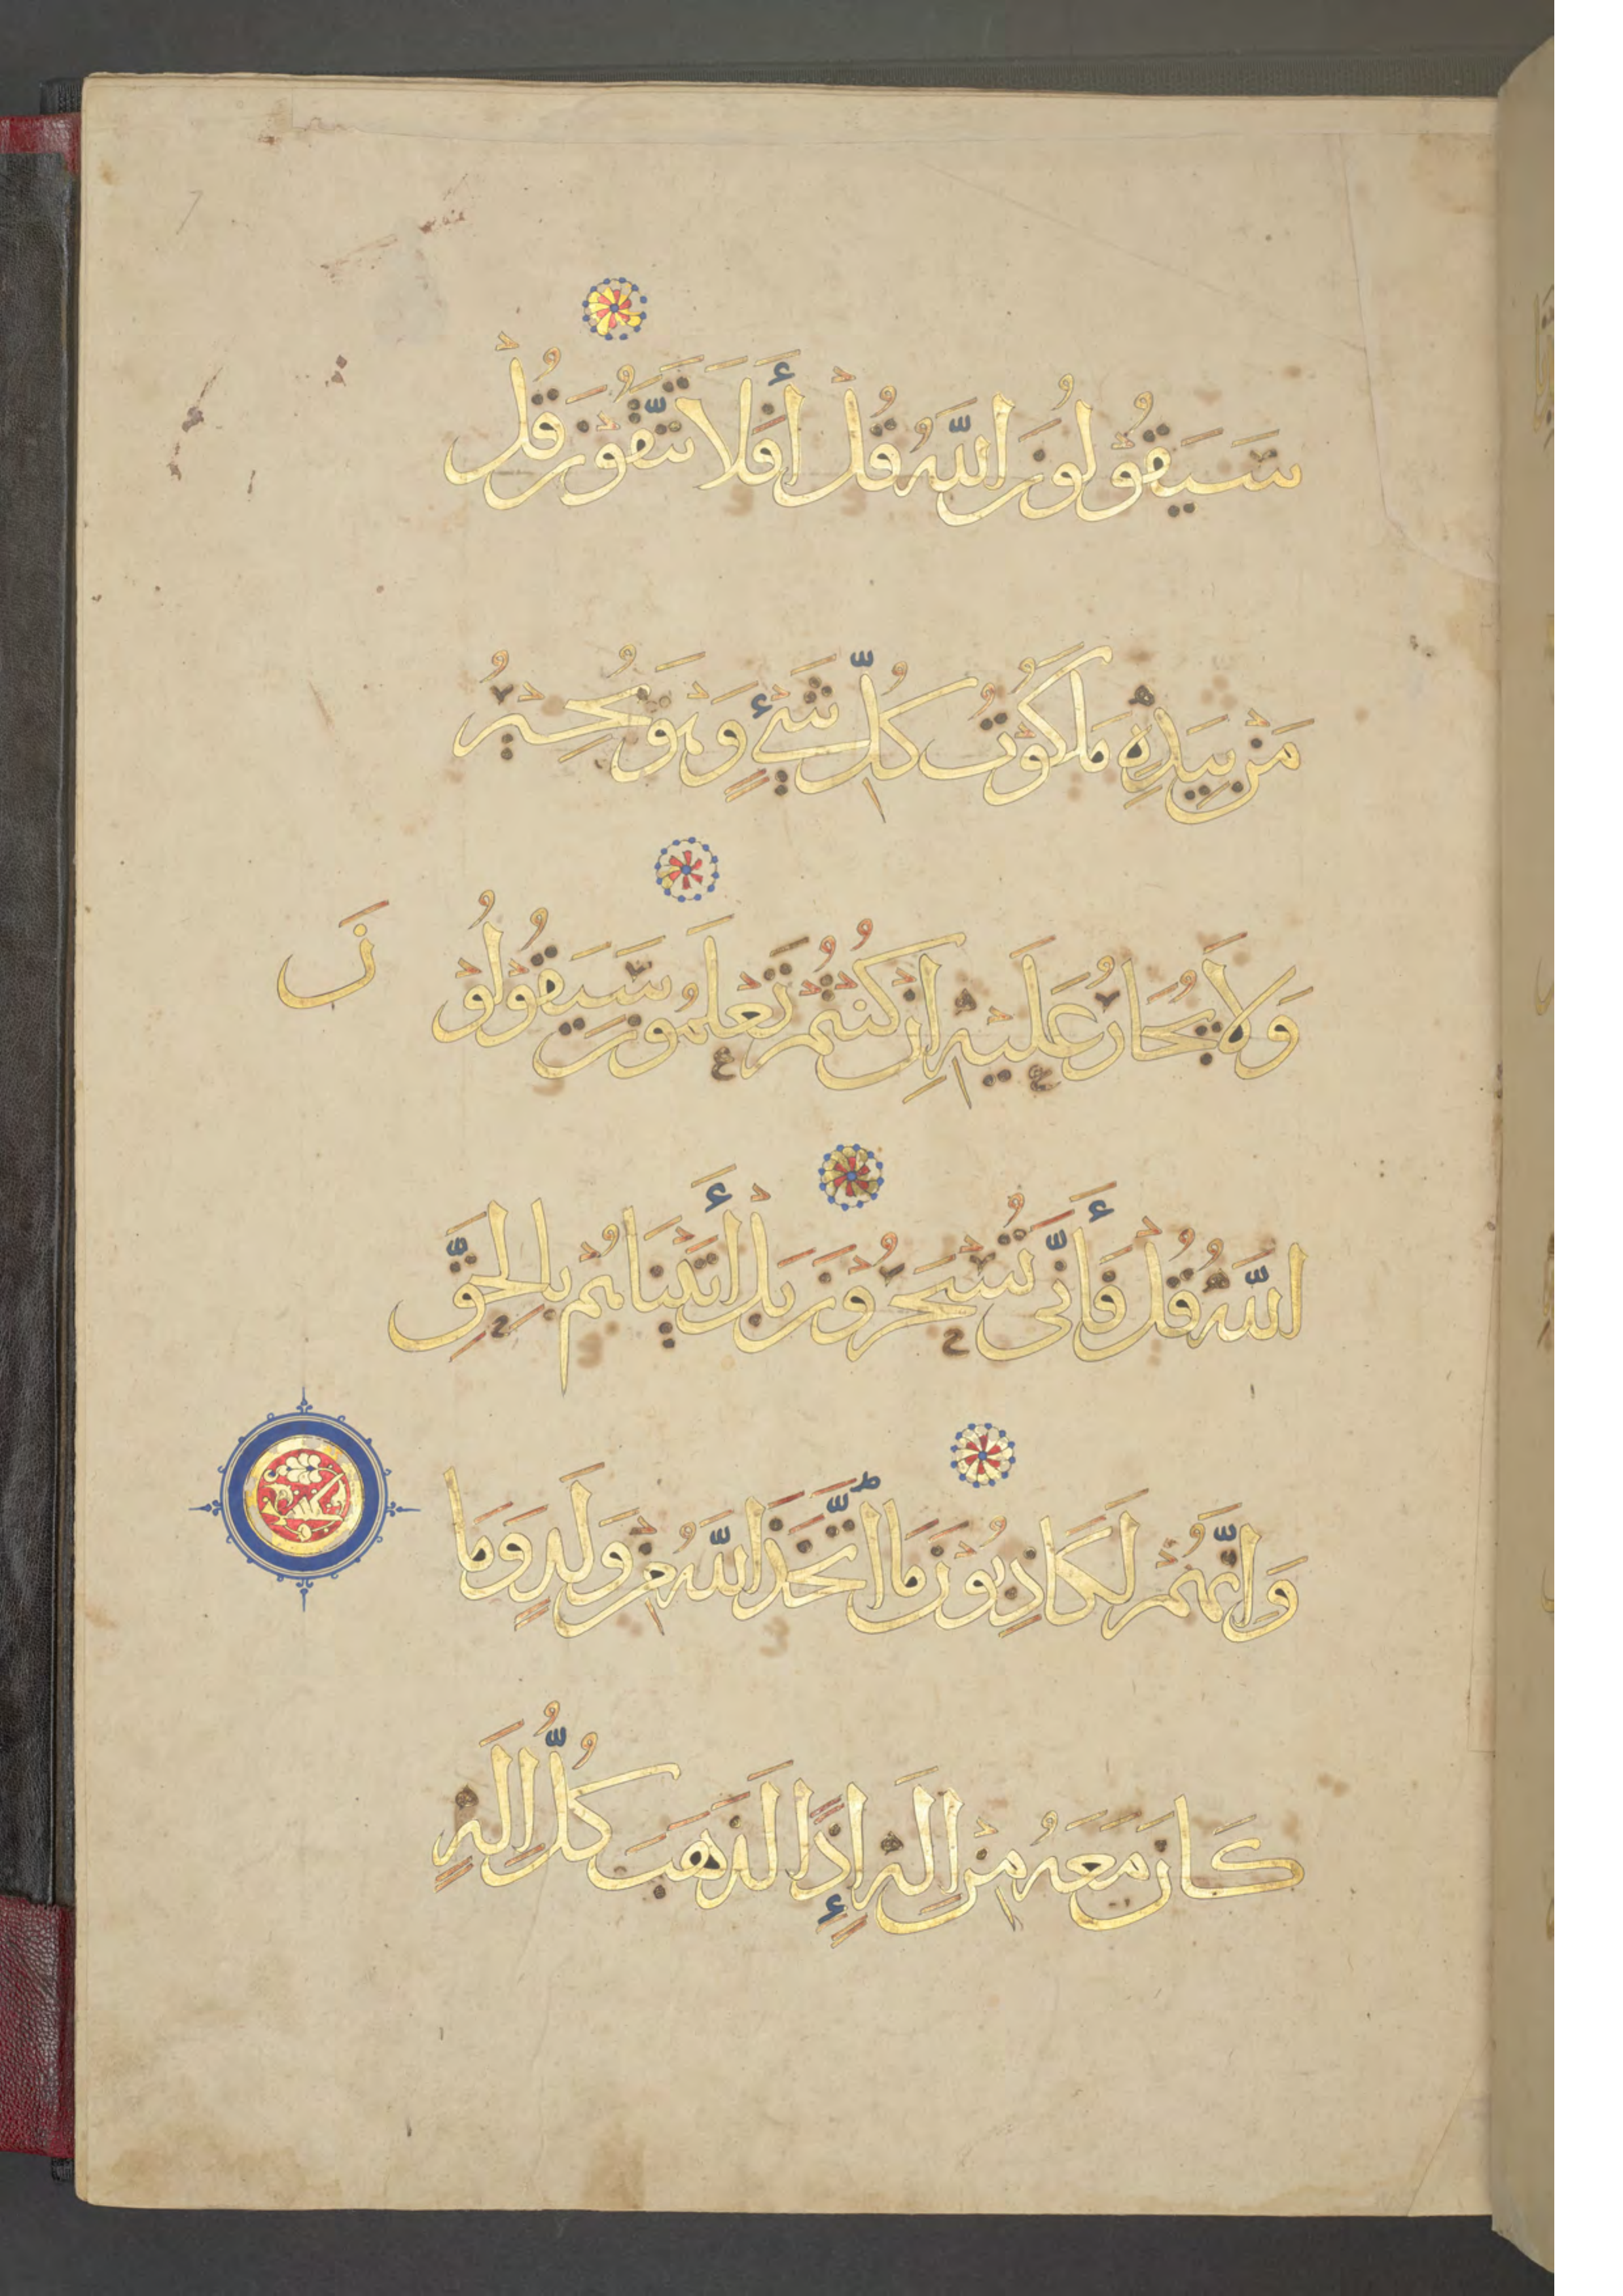 سَيَقُوْلُوْنَ اللّٰهُ قُلْ أَفَلَا تَتَّقُوْنَ قُلْ
مَنْ بِيَدِهِ مَلَكُوْتُ كُلِّ شَيْءٍ وَهْوَ يُجِيْرُ
وَلَا يُجَارُ عَلَيْهِ اِنْ كُنْتُمْ تَعْلَمُوْنَ سَيَقُوْلُوْ
نَ
اللّٰهُ قُلْ فَأَنَّى تُسْحَرُوْنَ بَلْ أَتَيْنَاهُمْ بِالْحَقِّ
وَاِنَّهُمْ لَكَاذِبُوْنَ مَا اتَّخَذَ اللّٰهُ مِنْ وَلَدٍ وَمَا
كَانَ مَعَهُ مِنْ اِلَهٍ إِذًا لَذَهَبَ كُلُّ اِلَهٍ